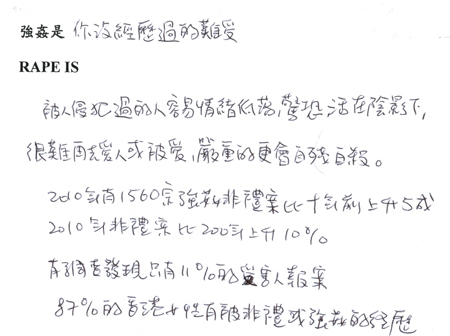 強姦是 你没經歷過的難受
RAPE IS
被人侵犯過的人容易情緒低落,驚恐活在陰影下,
很難再去愛人或被愛,嚴重的更會自殘自殺。
2010年有1560宗強姦非禮案比十年前上升5成
2010年非禮案比200年上升10%
有調查發現只有11%的受害人報案
87%的香港女性有被非禮或強姦的經歷